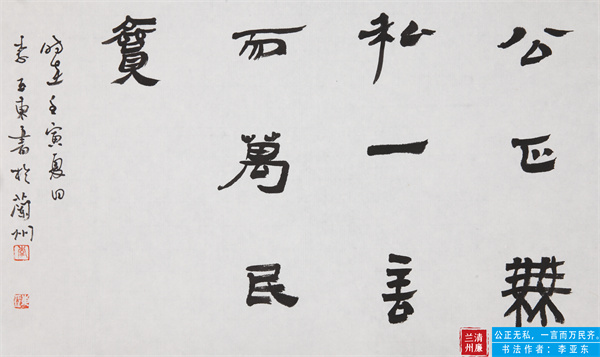 公正無
私一言
而萬民
賫
時在壬寅夏日
李亞東書於蘭州
清廉
兰州
公正无私,一言而万民齐。
书法作者:李亚东